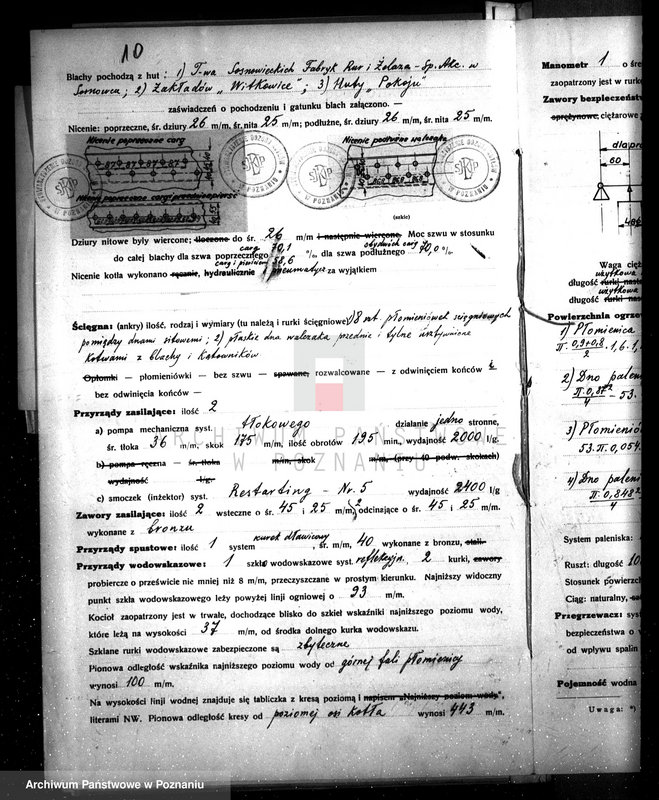 10
Blachy pochodzą z hut: 1) T-wa Sosnowieckich Fabryk Rur i Żelaza - Sp. Akc. w
Sosnowcu; 2) Zakładów „Witkowice"; 3) Huty „Pokoju"
zaświadczeń o pochodzeniu i gatunku blach załączono. —
Nicenie: poprzeczne, śr. dziury 26 m/m, śr. nita 25 m/m; podłużne, śr. dziury 26 m/m, śr. nita 25 m/m.
Nicenie poprzeczne carg
Nicenie podłużne walczaka
87 87 87 87 87
W POZNANIU
(szkic)
Dziury nitowe były wiercone; tłoczone do śr. 26 m/m i następnie wiercone. Moc szwu w stosunku
do całej blachy dla szwa poprzecznego carg 70,1 % dla szwa podłużnego obydwóch carg 70,0 %
Nicenie kotła wykonano ręcznie, hydraulicznie i pneumatycz za wyjątkiem
Ścięgna: (ankry) ilość, rodzaj i wymiary (tu należą i rurki ścięgniowe) 1) 8 szt. płomieniówek ścięgnowych
pomiędzy dnami sitowemi; 2) płaskie dna walczaka przednie i tylne usztywnione
kotwami z blachy i kątowników
Opłomki — płomieniówki — bez szwu — spawane, rozwalcowane — z odwinięciem końców i
bez odwinięcia końców —
Przyrządy zasilające: ilość 2
a) pompa mechaniczna syst. tłokowego działanie jedno stronne,
śr. tłoka 36 m/m, skok 175 m/m, ilość obrotów 195 min., wydajność 2000 l/g.
b) pompa ręczna — śr. tłoka m/m, skok m/m (przy 40 podw. skokach)
wydajność l/g.
c) smoczek (inżektor) syst. Restarting - Nr. 5 wydajność 2400 l/g
Zawory zasilające: ilość 2 wsteczne o śr. 45 i 25 m/m, 2 odcinające o śr. 45 i 25 m/m.
wykonane z bronzu
Przyrządy spustowe: ilość 1 system kurek dławicowy, śr. m/m, 40 wykonane z bronzu, stali
Przyrządy wodowskazowe: 1 szkło wodowskazowe syst. refleksyjn. 2 kurki, zawory
probiercze o prześwicie nie mniej niż 8 m/m, przeczyszczane w prostym kierunku. Najniższy widoczny
punkt szkła wodowskazowego leży powyżej linji ogniowej o 93 m/m.
Kocioł zaopatrzony jest w trwałe, dochodzące blisko do szkieł wskaźniki najniższego poziomu wody,
które leżą na wysokości 37 m/m, od środka dolnego kurka wodowskazu.
Szklane rurki wodowskazowe zabezpieczone są zbyteczne
Pionowa odległość wskaźnika najniższego poziomu wody od górnej fali płomienicy
wynosi 100 m/m.
Na wysokości linji wodnej znajduje się tabliczka z kresą poziomą i napisem „Najniższy poziom wody",
literami NW. Pionowa odległość kresy od poziomej osi kotła wynosi 443 m/m.
Manometr 1 o śre
zaopatrzony jest w rurk
Zawory bezpieczeństw
sprężynowe, ciężarowe;
dla prz
60
Waga cięż
długość użytkowa rurki nasta
długość użytkowa rurki nast
Powierzchnia ogrze
1) Płomienica
2) Dno palen
3) Płomienió
53.π.0,054.
4) Dno palen
π.0,848²
4
System paleniska:
Ruszt: długość 10
Stosunek powierzch
Ciąg: naturalny,
Przegrzewacz: sys
bezpieczeństwa o
od wpływu spalin
Pojemność wodna
Uwaga: *)
ARCHIWUM PAŃSTWOWE
W POZNANIU
Archiwum Państwowe w Poznaniu